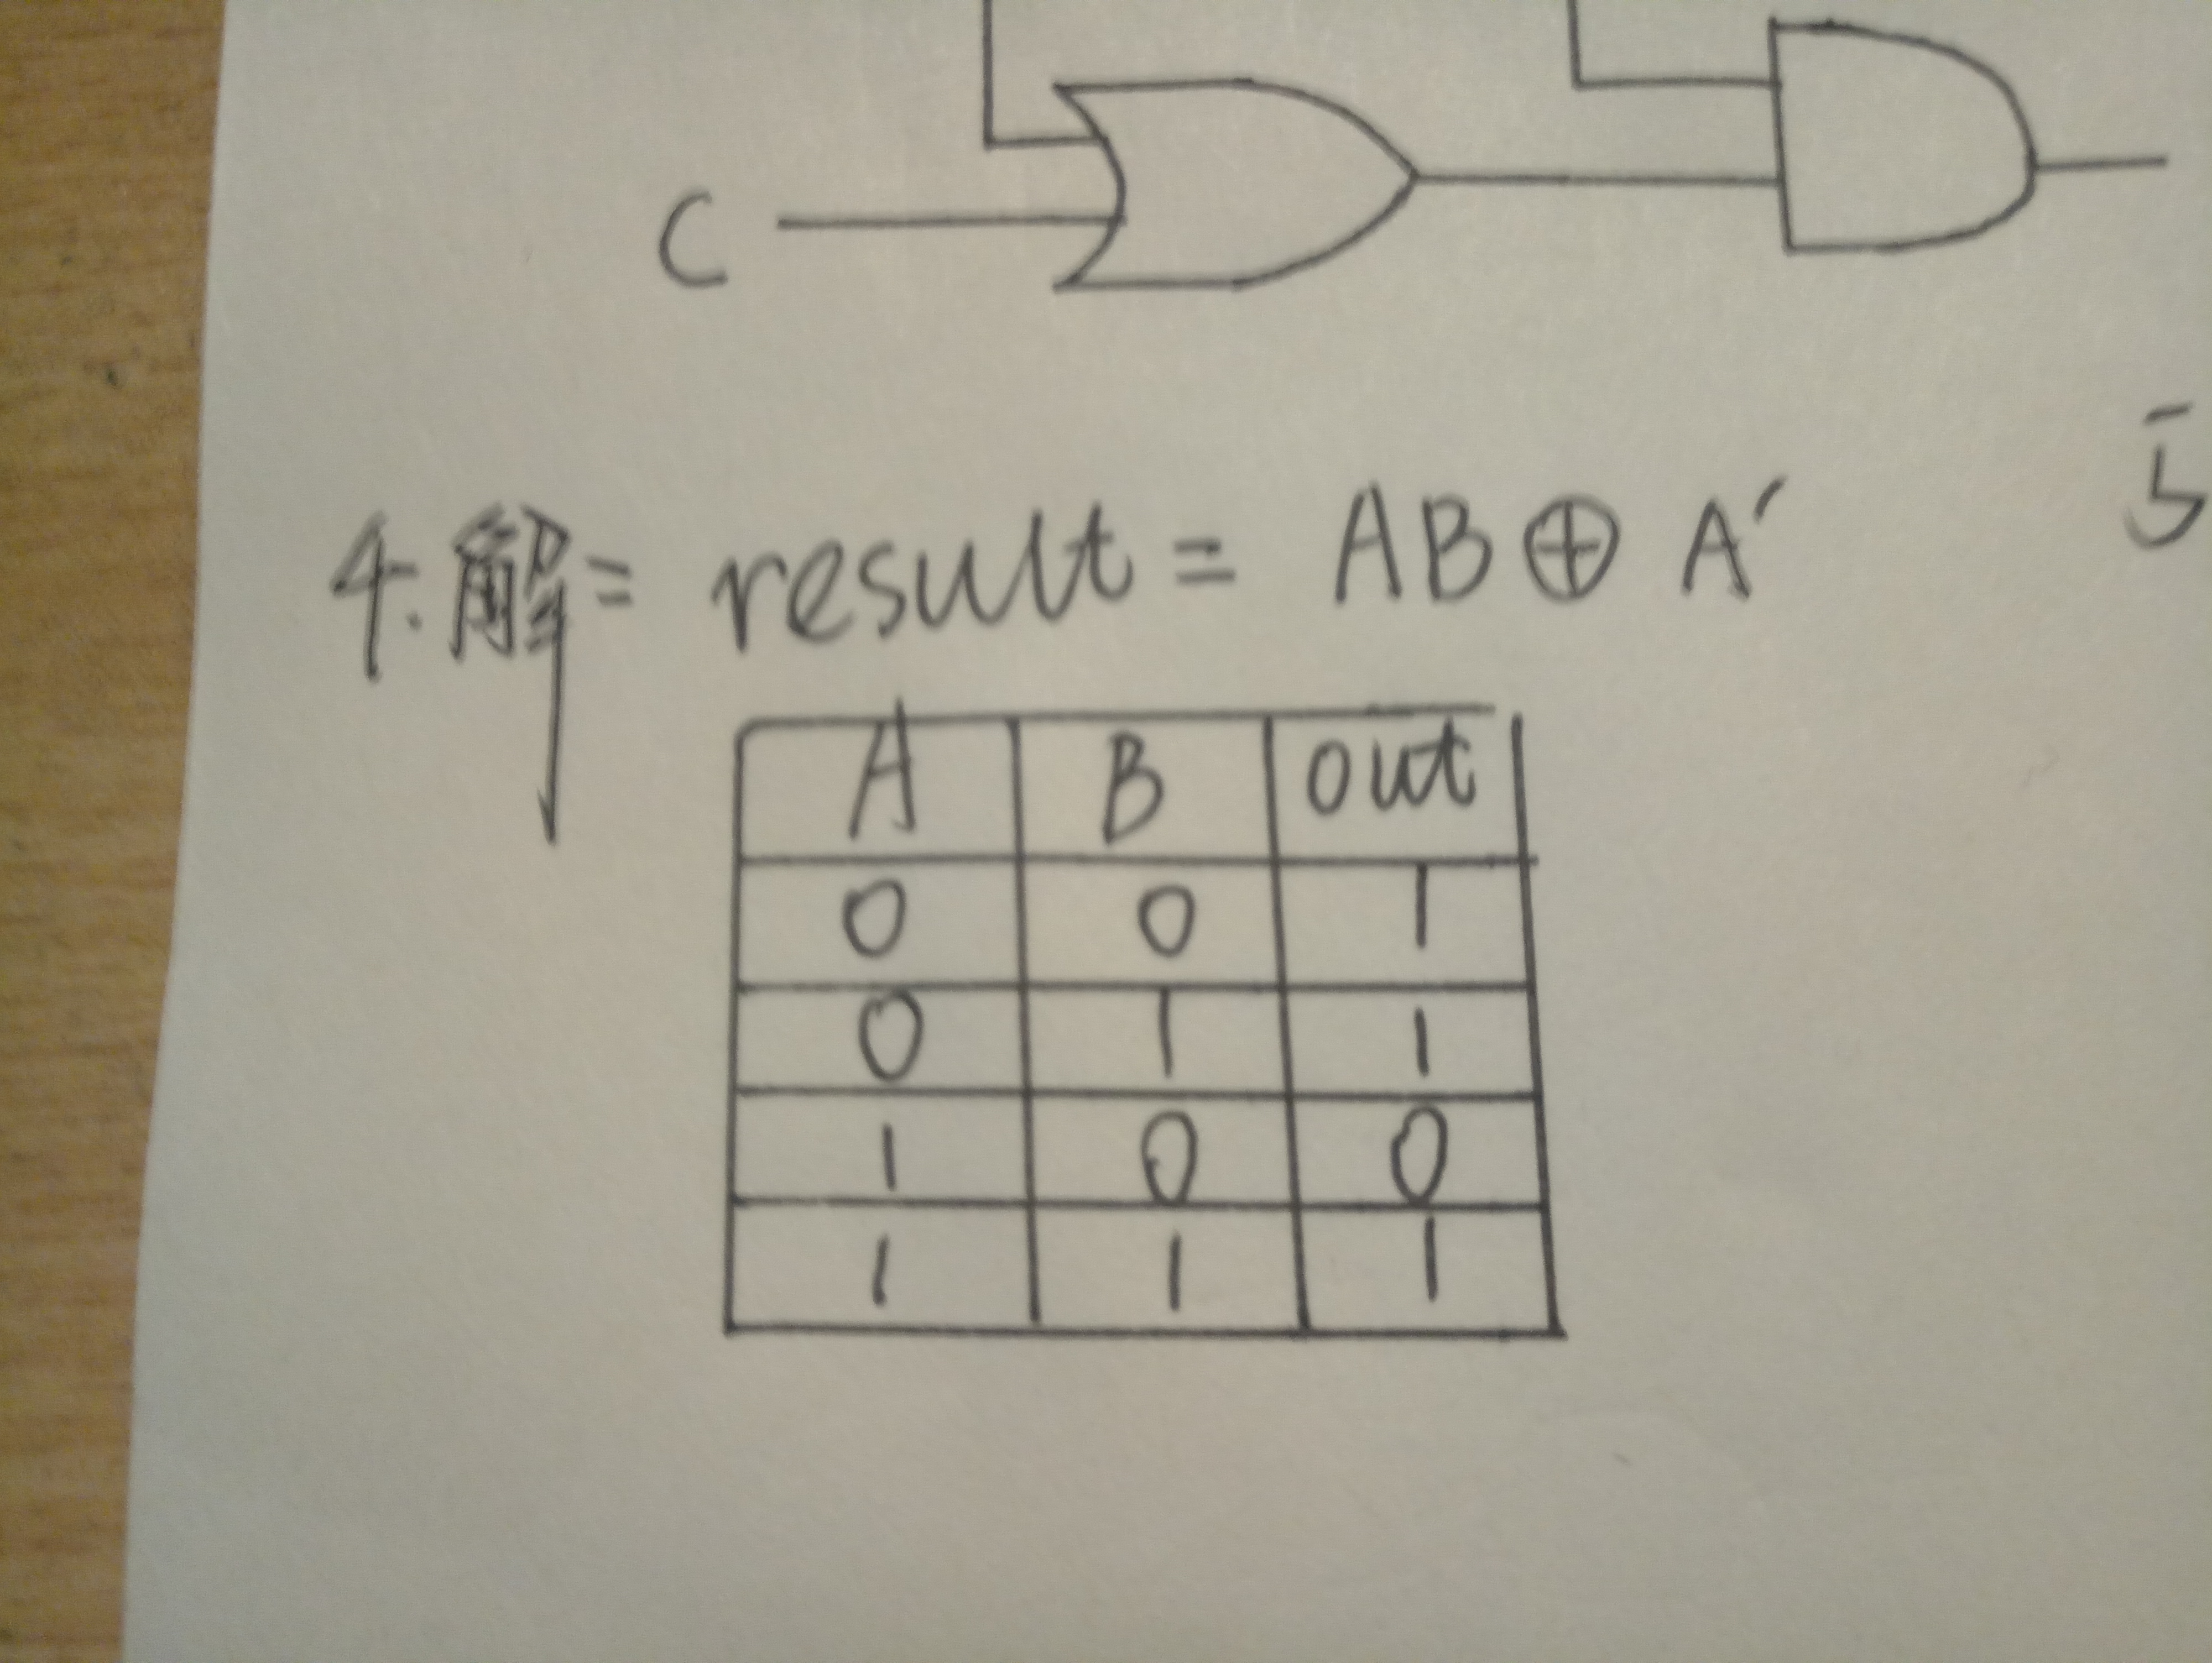 C
5
4.解= result = AB⊕A'
A B out
0 0 1
0 1 1
1 0 0
1 1 1